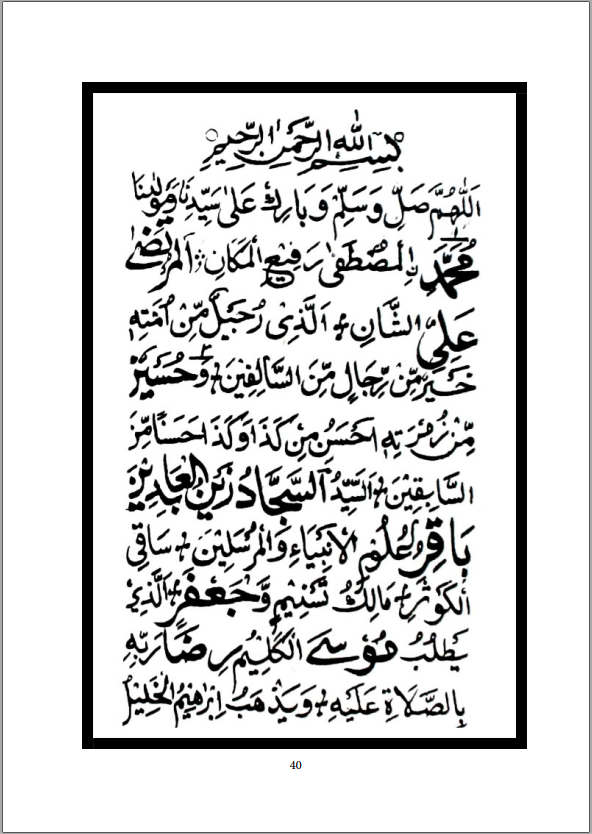 بِسْمِ اللهِ الرَّحْمٰنِ الرَّحِيْمِ
اَللّٰهُمَّ صَلِّ وَسَلِّمْ وَبَارِكْ عَلٰى سَيِّدِنَا وَمَوْلٰنَا
مُحَمَّدِ ِالْمُصْطَفٰى رَفِيْعِ الْمَكَانِ الْمُرْتَضٰى
عَلِيِّ الشَّانِ الَّذِىْ رُجَيْلٌ مِّنْ اُمَّتِهٖ
خَيْرٌ مِّنْ رِّجَالٍ مِّنَ السَّالِفِيْنَ وَحُسَيْنٌ
مِّنْ زُمْرَتِهٖ اَحْسَنُ مِنْ كَذَا وَكَذَا حَسَنًا مِّنَ
السَّابِقِيْنَ اَلسَّيِّدُ السَّجَّادُ زَيْنُ الْعَابِدِيْنَ
بَاقِرُ عُلُوْمِ الْاَنْبِيَاءِ وَالْمُرْسَلِيْنَ سَاقِى
الْكَوْثَرِ مَالِكُ تَسْنِيْمٍ وَّجَعْفَرَ الَّذِىْ
يَطْلُبُ مُوْسَى الْكَلِيْمُ رِضَا رَبِّهٖ
بِالصَّلَاةِ عَلَيْهِ وَيَذْهَبُ اِبْرٰهِيْمُ الْخَلِيْلُ
40